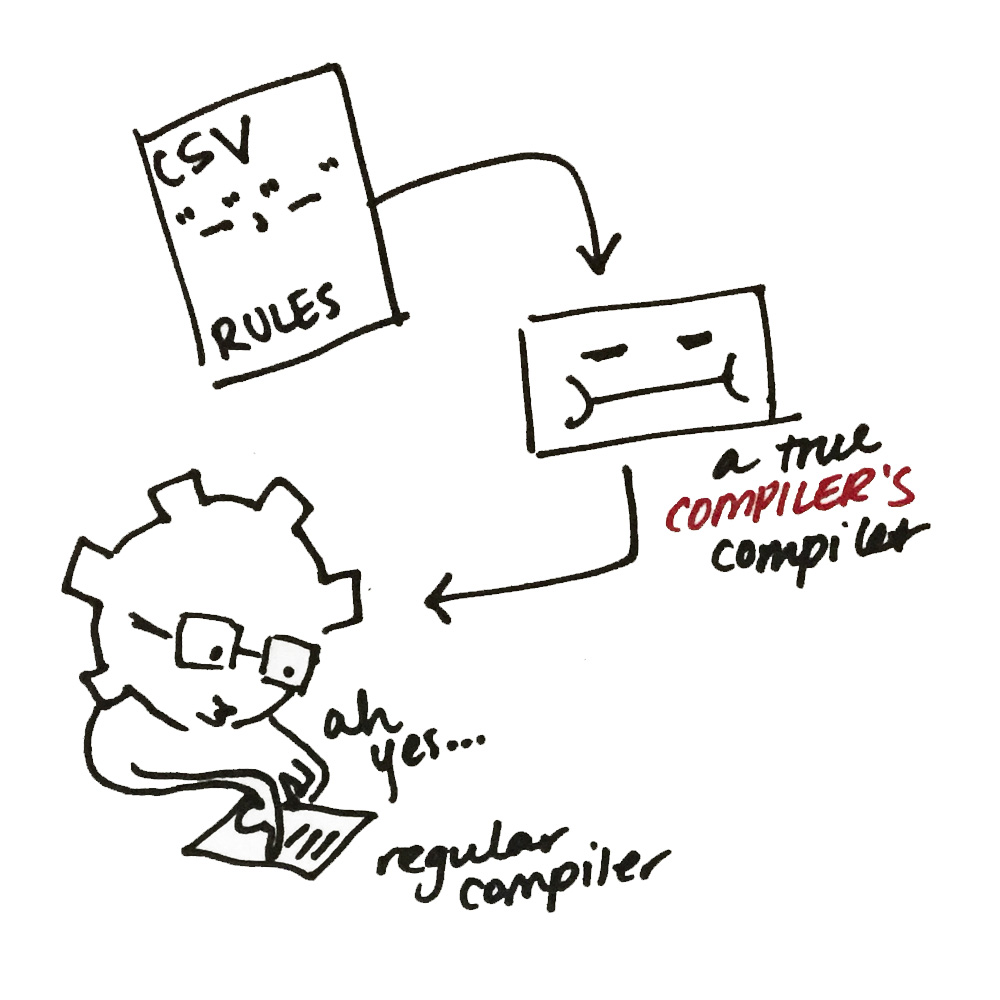 CSV
"—","—"
RULES
a true
COMPILER'S
compiler
ah
yes...
regular
compiler